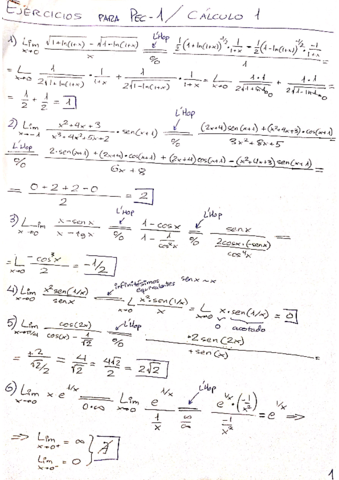 EJERCICIOS PARA PEC-1 / CÁLCULO 1
1) Lim x→0 (√(1+ln(1+x)) - √(1-ln(1+x)))/x = L'Hop 0/0 (½(1+ln(1+x))^(-1/2) · 1/(1+x) - ½(1-ln(1+x))^(-1/2) · -1/(1+x))/1 =
= L x→0 1/(2√(1+ln(1+x))) · 1/(1+x) + 1/(2√(1-ln(1+x))) · 1/(1+x) = L x→0 1·1/(2√(1+ln 1)) + 1·1/(2√(1-ln 1)) =
= 1/2 + 1/2 = 1
2) Lim x→-1 (x²+4x+3)/(x³+4x²+5x+2) · sen(x+1) = L'Hop 0/0 ((2x+4)sen(x+1) + (x²+4x+3)·cos(x+1))/(3x²+8x+5)
L'Hop 0/0 (2·sen(x+1) + (2x+4)·cos(x+1) + (2x+4)cos(x+1) - (x²+4x+3)sen(x+1))/(6x+8)
= (0+2+2-0)/2 = 2
3) Lim x→0 (x-senx)/(x-tgx) = L'Hop 0/0 (1-cosx)/(1 - 1/cos²x) = L'Hop 0/0 senx/(2cosx·(-senx)/cos⁴x) =
= L x→0 -cos³x/2 = -1/2
4) Lim x→0 x²sen(1/x)/senx = infinitésimos equivalentes senx ~ x L x→0 x²·sen(1/x)/x = L x→0 x·sen(1/x) = 0
0 acotado
5) Lim cos(2x)/(cos(x) - 1/√2) = L'Hop 0/0 ·2sen(2x)/+sen(x) =
= ±2/(√2/2) = 4/√2 = 4√2/2 = 2√2
6) Lim x→0 x e^(1/x) = 0·∞ Lim x→0 e^(1/x)/(1/x) = L'Hop ∞/∞ e^(1/x)·(-1/x²)/(-1/x²) = e^(1/x) ⇒
⇒ Lim x→0⁺ = ∞
Lim x→0⁻ = 0 } ∄
1